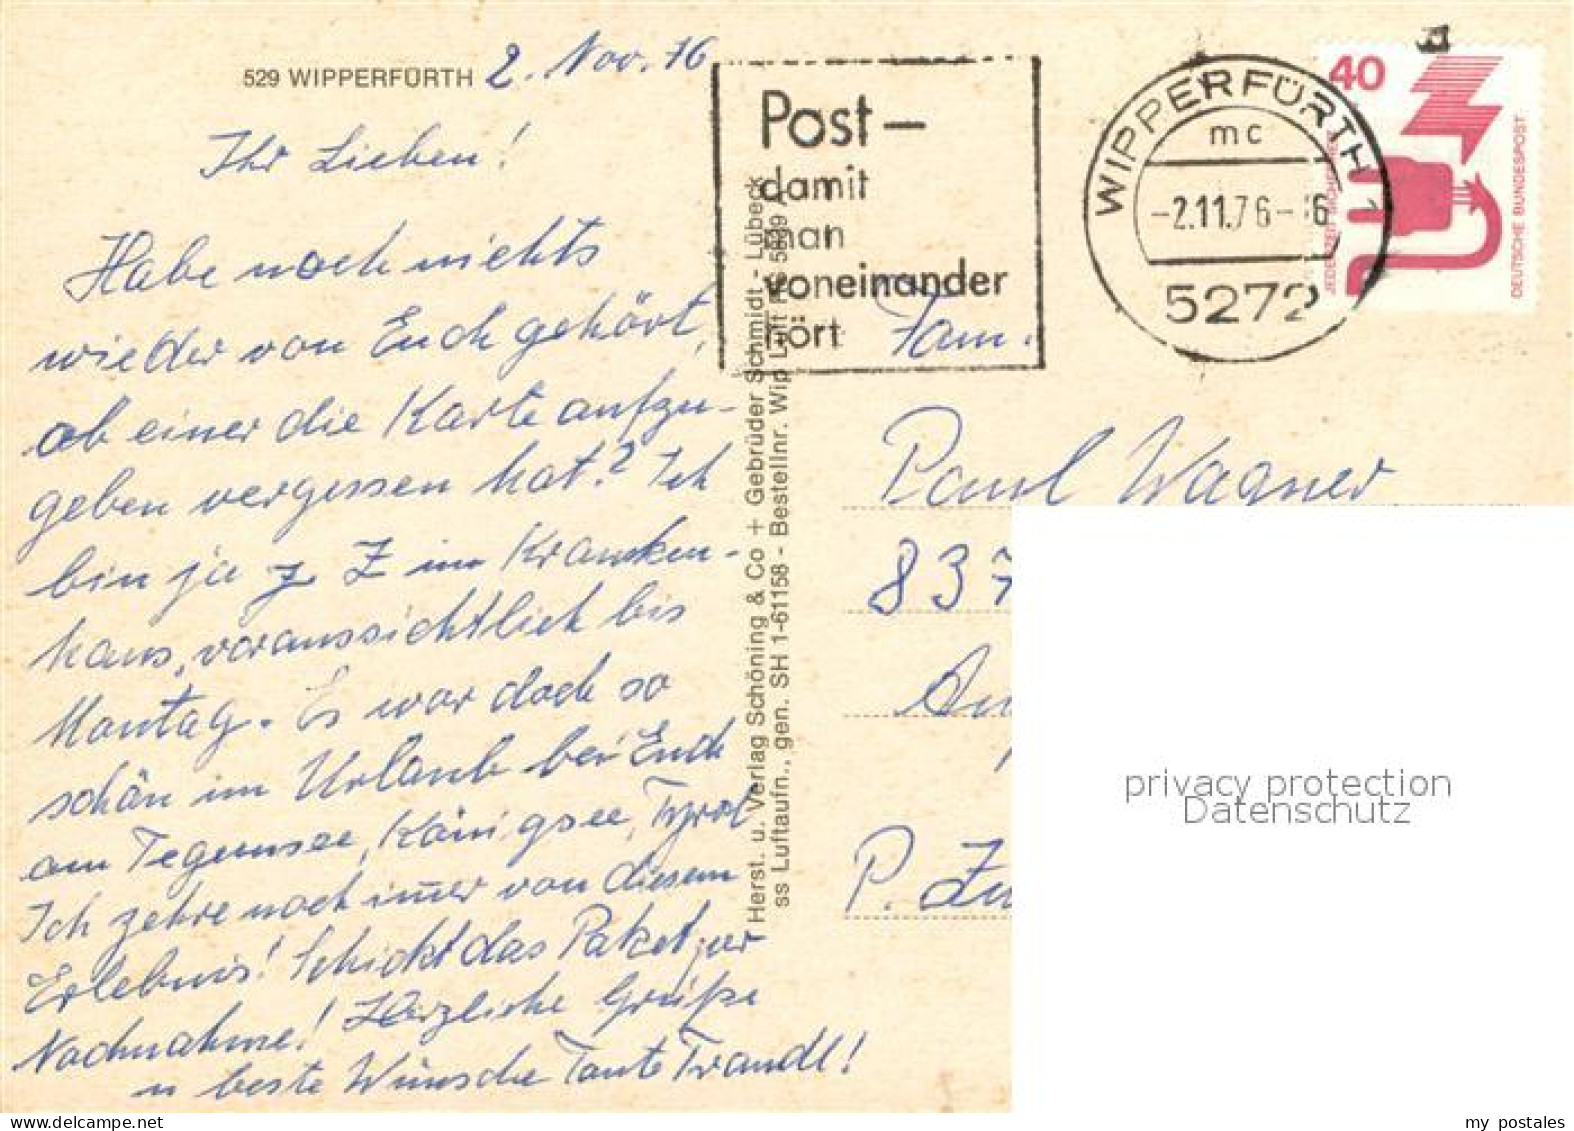 529 WIPPERFÜRTH 2. Nov. 76
Ihr Lieben!
Habe noch nichts
wieder von Euch gehört,
ob einer die Karte aufzu-
geben vergessen hat? Ich
bin ja z Z im Kranken-
haus, voraussichtlich bis
Montag. Es war doch so
schön im Urlaub bei Euch
am Tegernsee, Königsee, Tyrol
Ich zehre noch immer von diesem
Erlebnis! Schickt das Paket per
Nachnahme! Herzliche Grüße
u beste Wünsche Tante Traudl!
Herst. u. Verlag Schöning & Co + Gebrüder Schmidt - Lübeck
ss Luftaufn., gen. SH 1-61158 - Bestellnr. Wip Luft
Post –
damit
man
voneinander
hört
WIPPERFÜRTH 1
mc
-2.11.76-16
5272
40
JEDERZEIT SICHERHEIT
DEUTSCHE BUNDESPOST
Fam.
Paul Wagner
837
P. Zw
privacy protection
Datenschutz
www.ansichtskartenversand.com
my postales